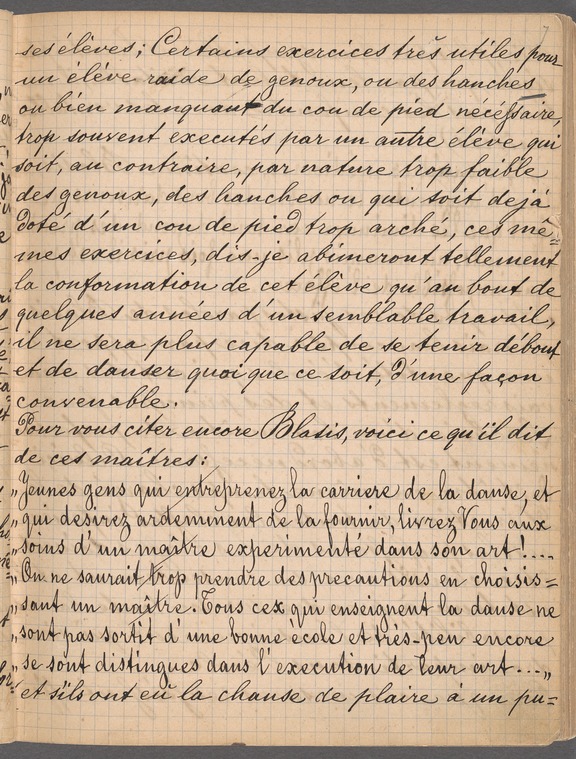 7
ses élèves; Certains exercices très utiles pour
un élève raide de genoux, ou des hanches
ou bien manquant du cou de pied nécéssaire,
trop souvent executés par un autre élève qui
soit, au contraire, par nature trop faible
des genoux, des hanches ou qui soit dejà
doté d'un cou de pied trop arché, ces mê=
mes exercices, dis-je abîmeront tellement
la conformation de cet élève qu'au bout de
quelques années d'un semblable travail,
il ne sera plus capable de se tenir débout
et de danser quoi que ce soit, d'une façon
convenable.
Pour vous citer encore Blasis, voici ce qu'il dit
de ces maîtres:
„Jeunes gens qui entreprenez la carriere de la danse, et
„qui desirez ardemment de la fournir, livrez Vous aux
„soins d'un maître experimenté dans son art!....
„On ne saurait trop prendre des precautions en choisis=
„sant un maître. Tous cex qui enseignent la danse ne
„sont pas sortit d'une bonne école et très-peu encore
„se sont distingues dans l'execution de leur art...„
et s'ils ont eû la chanse de plaire à un pu=